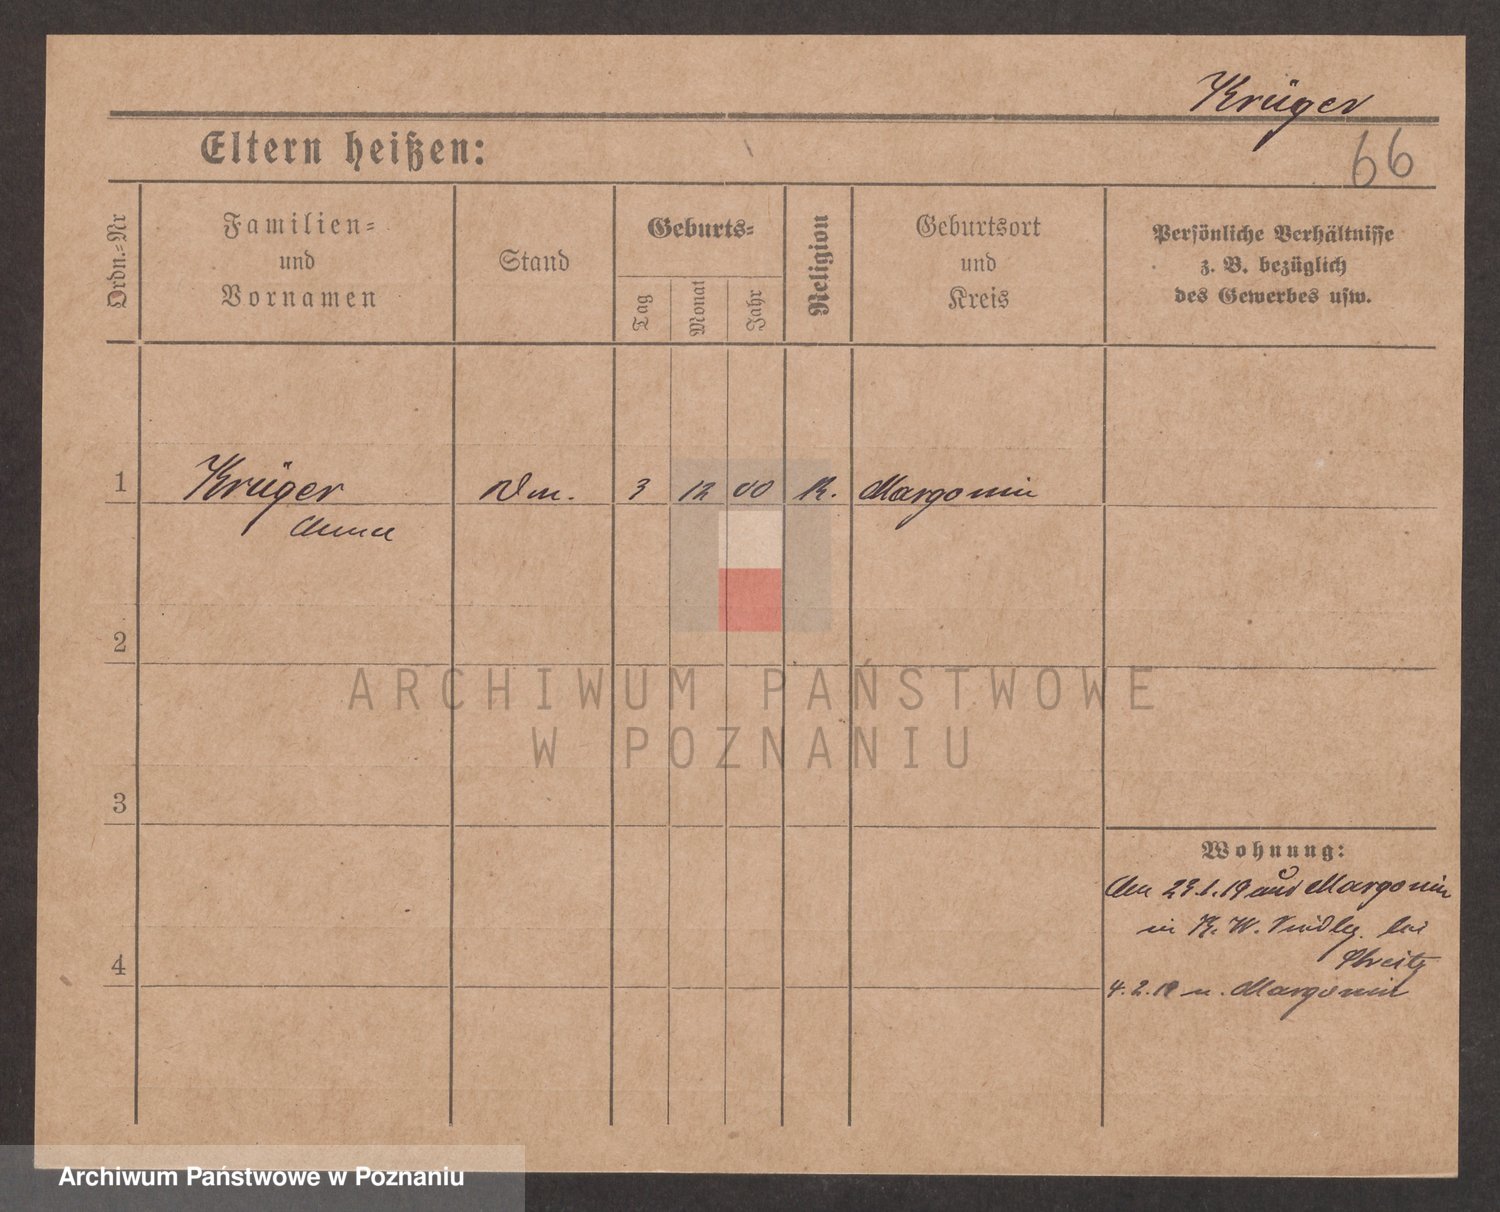 Krüger
66
Eltern heißen:
Ordn.=Nr
Familien=
und
Vornamen
Stand
Geburts=
Tag
Monat
Jahr
Religion
Geburtsort
und
Kreis
Persönliche Verhältnisse
z. B. bezüglich
des Gewerbes usw.
1 Krüger 3 12 00 K. Margonin
Anna
2
ARCHIWUM PAŃSTWOWE
W POZNANIU
3
Wohnung:
aus Margonin
in K. W. bei
4
4.2.19 n. Margonin
Archiwum Państwowe w Poznaniu